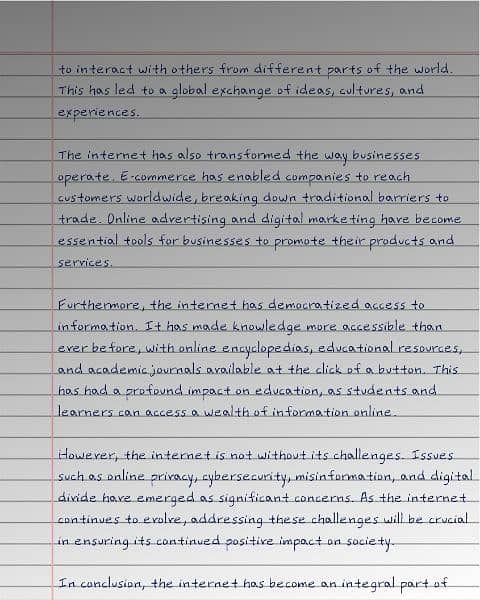 to interact with others from different parts of the world.
This has led to a global exchange of ideas, cultures, and
experiences.
The internet has also transformed the way businesses
operate. E-commerce has enabled companies to reach
customers worldwide, breaking down traditional barriers to
trade. Online advertising and digital marketing have become
essential tools for businesses to promote their products and
services.
Furthermore, the internet has democratized access to
information. It has made knowledge more accessible than
ever before, with online encyclopedias, educational resources,
and academic journals available at the click of a button. This
has had a profound impact on education, as students and
learners can access a wealth of information online.
However, the internet is not without its challenges. Issues
such as online privacy, cybersecurity, misinformation, and digital
divide have emerged as significant concerns. As the internet
continues to evolve, addressing these challenges will be crucial
in ensuring its continued positive impact on society.
In conclusion, the internet has become an integral part of